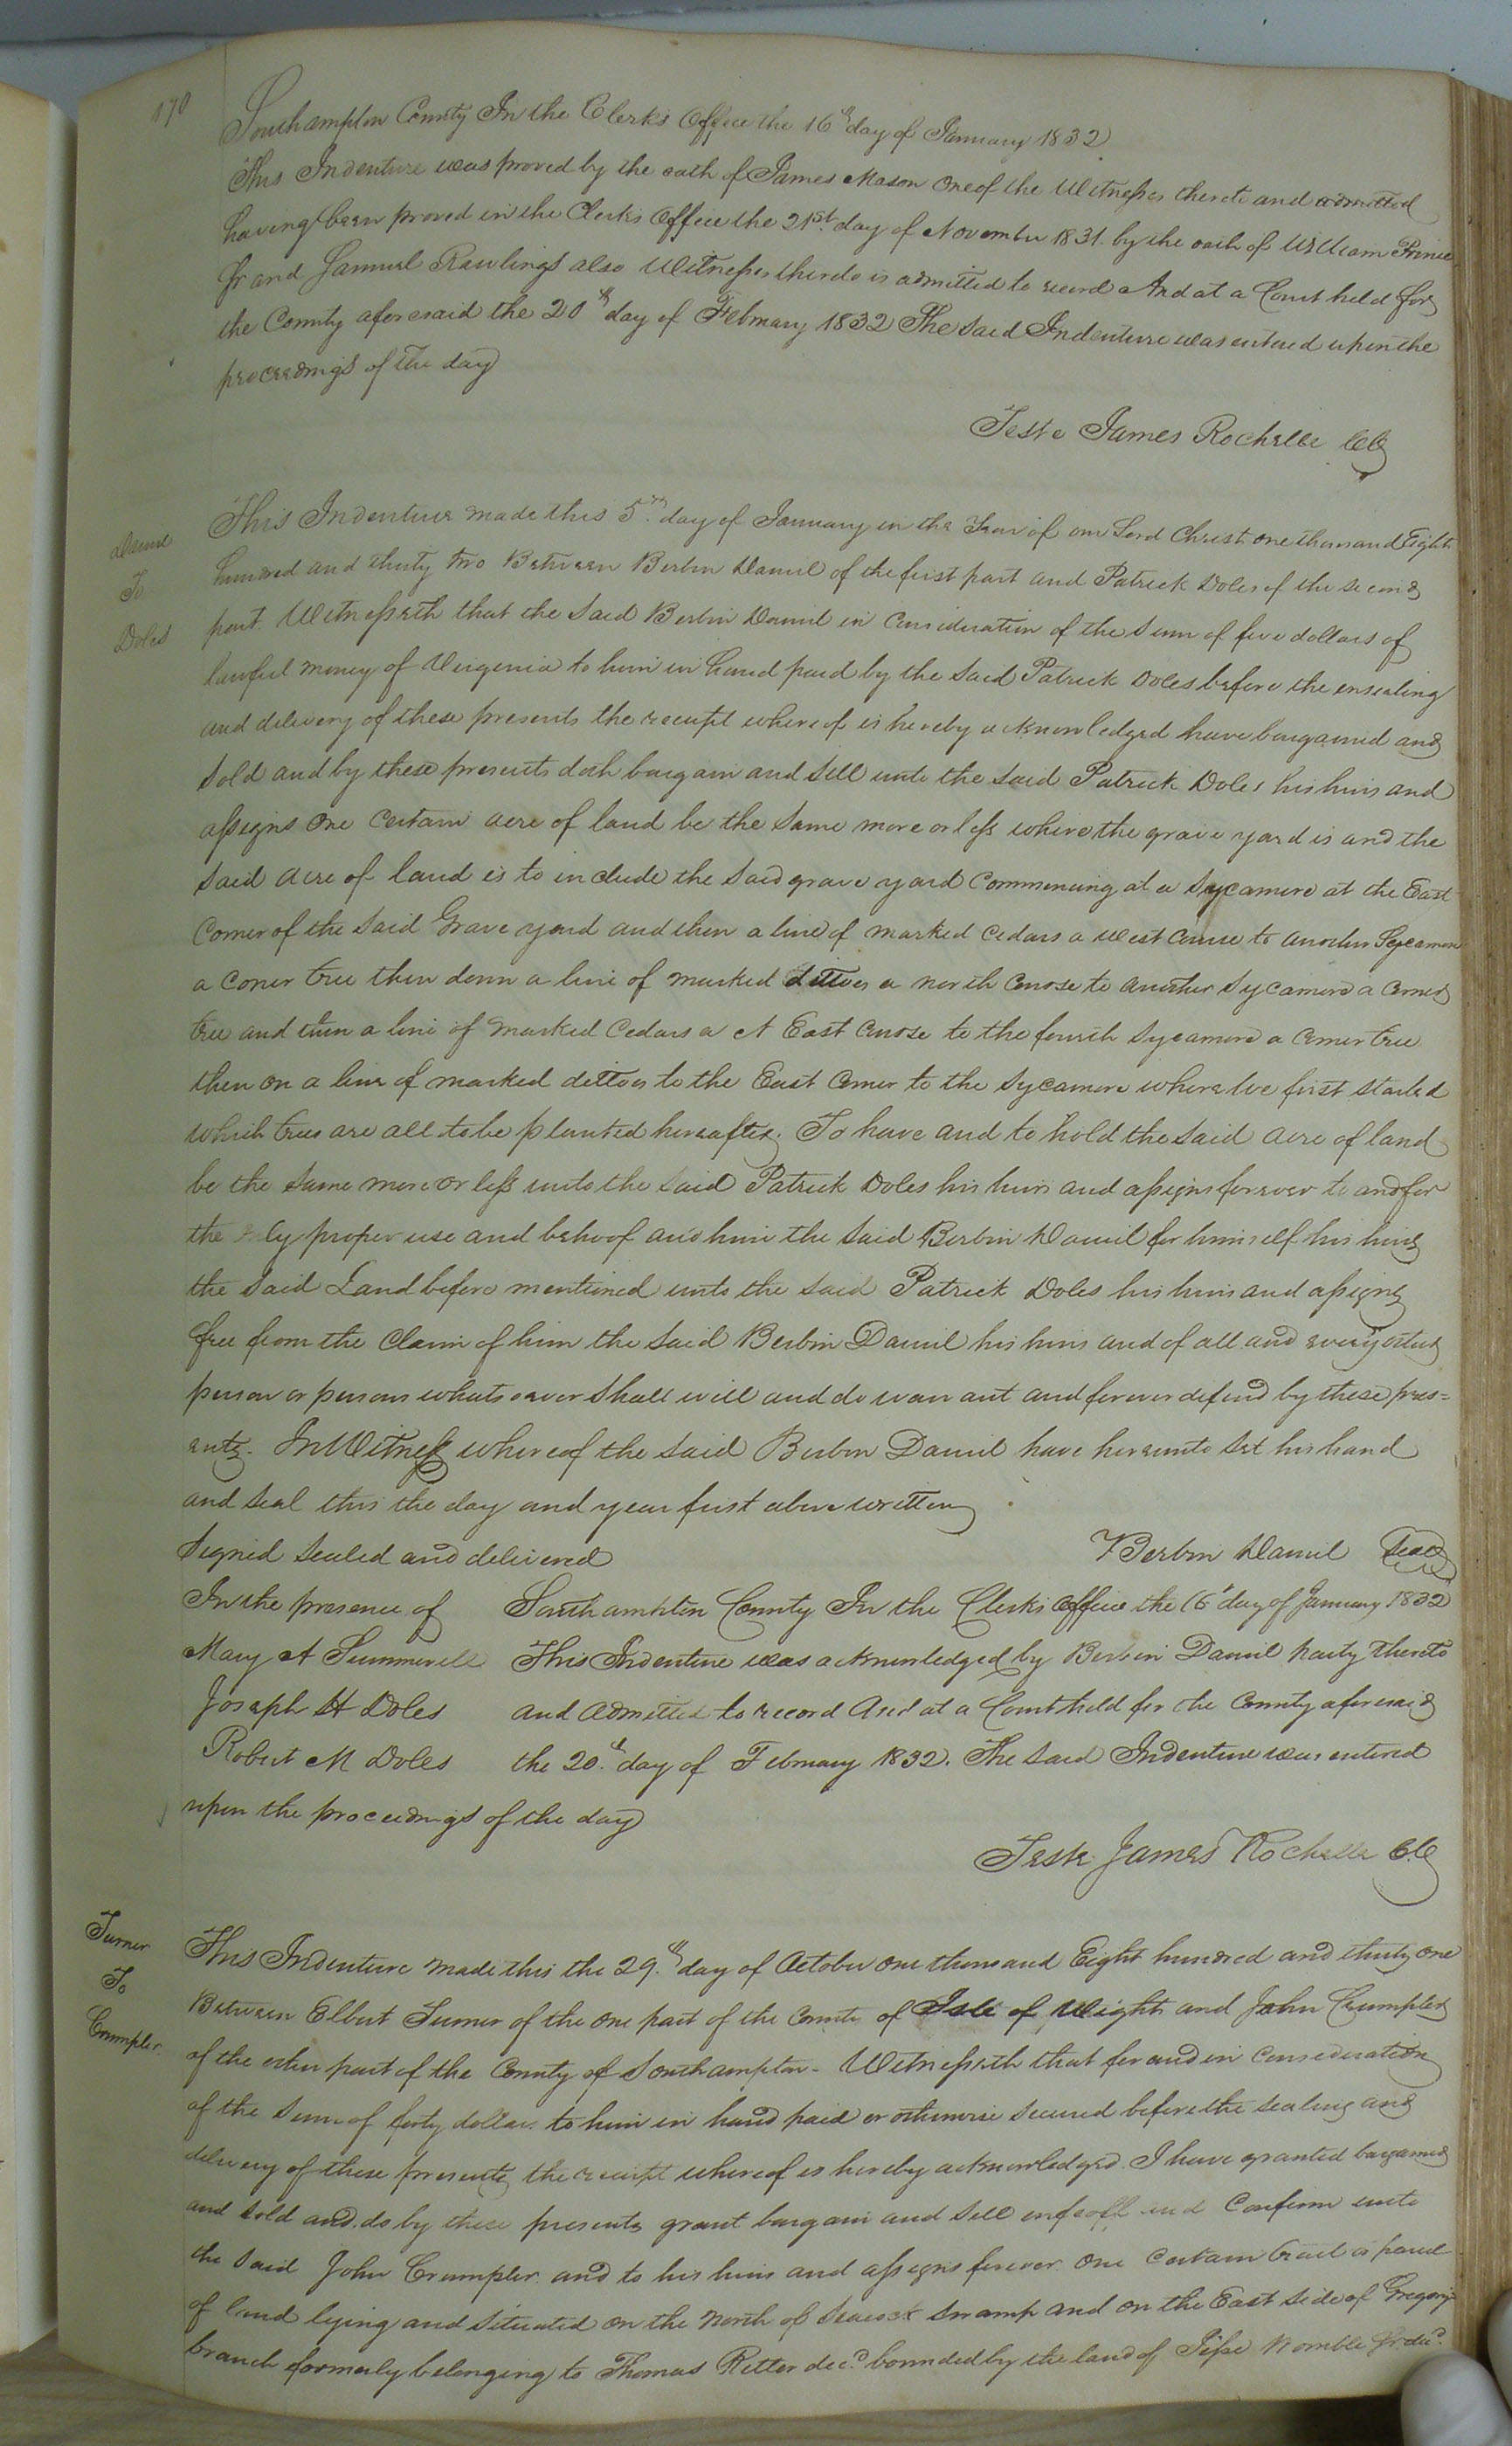 170
Southampton County In the Clerks Office the 16th day of January 1832
This Indenture was proved by the oath of James Mason one of the Witnesses thereto and admitted
having been proved in the Clerks Office the 21st day of November 1831 by the oath of William Prince
Jr and Samuel Rawlings also Witnesses thereto is admitted to record And at a Court held for
the County aforesaid the 20th day of February 1832 The said Indenture was entered upon the
proceedings of the day
Teste James Rochelle CC
Daniel
To
Doles
This Indenture made this 5th day of January in the Year of our Lord Christ one thousand Eight
hundred and thirty two Between Berbin Daniel of the first part and Patrick Doles of the second
part. Witnesseth that the said Berbin Daniel in consideration of the sum of five dollars of
lawful money of Virginia to him in hand paid by the said Patrick Doles before the ensealing
and delivery of these presents the receipt whereof is hereby acknowledged have bargained and
sold and by these presents doth bargain and sell unto the said Patrick Doles his heirs and
assigns One certain acre of land be the same more or less where the grave yard is and the
said acre of land is to include the said grave yard commencing at a Sycamore at the East
Corner of the said Grave yard and then a line of marked cedars a west course to another Sycamore
a corner tree then down a line of marked dittoes a north course to another Sycamore a corner
tree and then a line of marked cedars a N East course to the fourth Sycamore a corner tree
then on a line of marked dittoes to the East corner to the Sycamore where we first started
which trees are all to be planted hereafter. To have and to hold the said acre of land
be the same more or less unto the said Patrick Doles his heirs and assigns forever to and for
the only proper use and behoof and him the said Berbin Daniel for himself his heirs
the said Land before mentioned unto the said Patrick Doles his heirs and assigns
free from the claim of him the said Berbin Daniel his heirs and of all and every other
person or persons whatsoever shall will and do warrant and forever defend by these pres=
ents. In Witness whereof the said Berbin Daniel have hereunto set his hand
and seal this the day and year first above written
Signed sealed and delivered Berbin Daniel Seal
In the presence of Southampton County In the Clerks office the 16th day of January 1832
Mary A Summerell This Indenture was acknowledged by Berbin Daniel party thereto
Joseph H Doles and admitted to record And at a Court held for the County aforesaid
Robert M Doles the 20th day of February 1832. The said Indenture was entered
upon the proceedings of the day
Teste James Rochelle CC
Turner
To
Crumpler
This Indenture made this the 29th day of October one thousand Eight hundred and thirty one
Between Elbert Turner of the one part of the county of Isle of Wight and John Crumpler
of the other part of the County of Southampton - Witnesseth that for and in consideration
of the sum of forty dollars to him in hand paid or otherwise secured before the sealing and
delivery of these presents the receipt whereof is hereby acknowledged. I have granted bargained
and sold and do by these presents grant bargain and sell enfeoff and confirm unto
the said John Crumpler and to his heirs and assigns forever One certain tract or parcel
of land lying and situated on the north of Seacock swamp and on the East side of Gregory's
branch formerly belonging to Thomas Ritter decd. bounded by the land of Womble Jr decd.